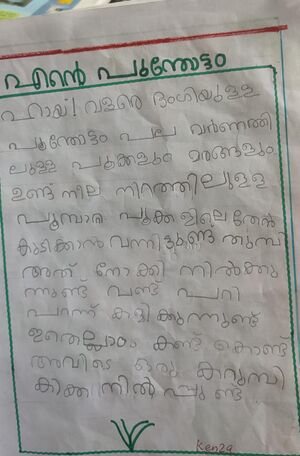 എന്റെ പൂന്തോട്ടം
ഹായ്! വളരെ ഭംഗിയുള്ള
പൂന്തോട്ടം പല വർണത്തി
ലുള്ള പൂക്കളും മരങ്ങളും
ഉണ്ട് നീല നിറത്തിലുള്ള
പൂമ്പാറ്റ പൂക്കളിലെ തേൻ
കുടിക്കാൻ വന്നിട്ടുണ്ട് തുമ്പി
അത് നോക്കി നിൽക്കു
ന്നുണ്ട് വണ്ട് പാറി
പറന്ന് കളിക്കുന്നുണ്ട്
ഇതെല്ലാം കണ്ട് കൊണ്ട്
അവിടെ ഒരു കുറുമ്പി
ക്കിക്ക നിൽപ്പുണ്ട്.
Kenza